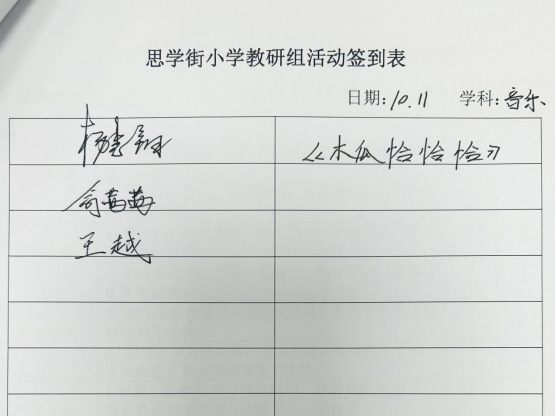 思学街小学教研组活动签到表
日期：10.11 学科：音乐
杨 《木瓜恰恰恰》
俞莓莓
王越